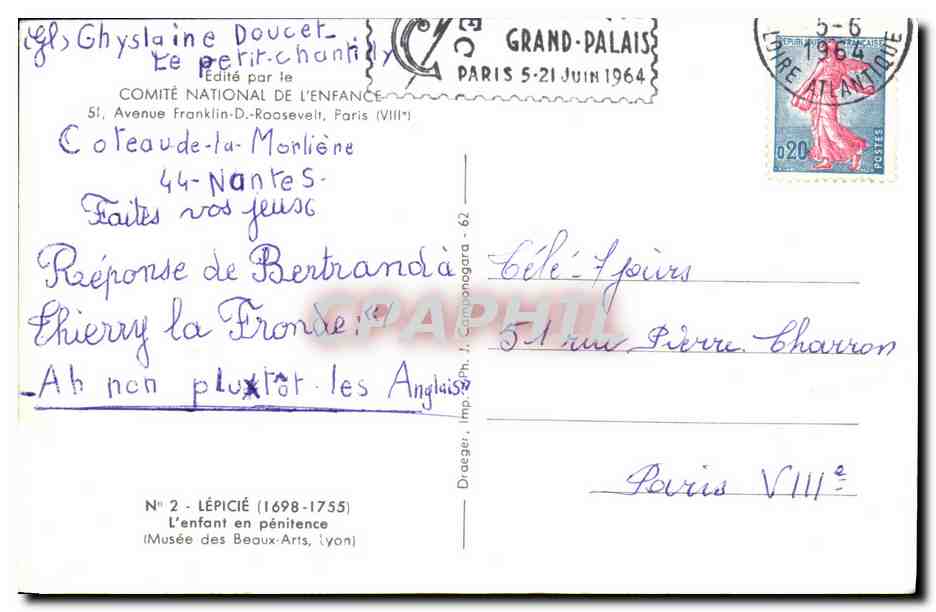 (Gl) Ghyslaine Doucet
Le petit-chantilly
Édité par le
COMITÉ NATIONAL DE L'ENFANCE
51, Avenue Franklin-D.-Roosevelt, Paris (VIIIe)
Coteau-de-la-Morlière
44-Nantes-
Faites vos jeux
Réponse de Bertrand à
Thierry la Fronde: "
- Ah non plutôt les Anglais"
N° 2 - LÉPICIÉ (1698-1755)
L'enfant en pénitence
(Musée des Beaux-Arts, Lyon)
Draeger, Imp. - Ph. J. Camponogara - 62
GRAND-PALAIS
PARIS 5-21 JUIN 1964
5-6
1964
LOIRE ATLANTIQUE
REPUBLIQUE FRANÇAISE
0,20
POSTES
Télé-7 jours
51 rue Pierre Charron
Paris VIIIe
CPAPHIL